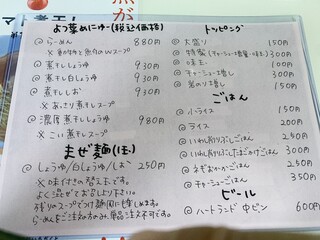 よつ葉めにゅー(税込価格)
◎らーめん 880円
※動物と魚介のWスープ
◎煮干ししょうゆ 930円
◎煮干し白しょうゆ 930円
◎煮干ししお 930円
※あっさり煮干しスープ
◎濃厚煮干し 980円
※こい煮干しスープ
まぜ麺(小)
◎しょうゆ/白しょうゆ/しお 250円
※味付きの替え玉です。
よく混ぜてお召し上がり下さい。
残りのスープでつけ麺風にも楽しめます。
らーめんをご注文の方のみ。単品注文不可です。
トッピング
◎大盛り 150円
◎特製(チャーシュー増量・味玉) 300円
◎味玉 100円
◎チャーシュー増し 300円
◎岩のり増し 150円
ごはん
◎小ライス 150円
◎ライス 200円
◎いわし削りぶしごはん 250円
◎いわし削りぶしたまかけごはん 300円
◎ねぎおかかごはん 250円
◎チャーシューごはん 350円
ビール
◎ハートランド 中ビン 600円